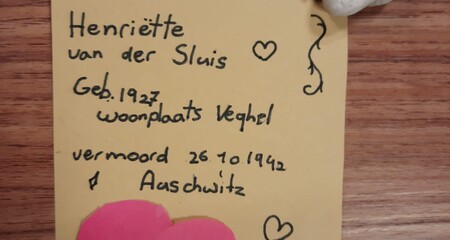 Henriëtte
van der Sluis
Geb. 1927
woonplaats Veghel
vermoord 26 10 1942
Auschwitz